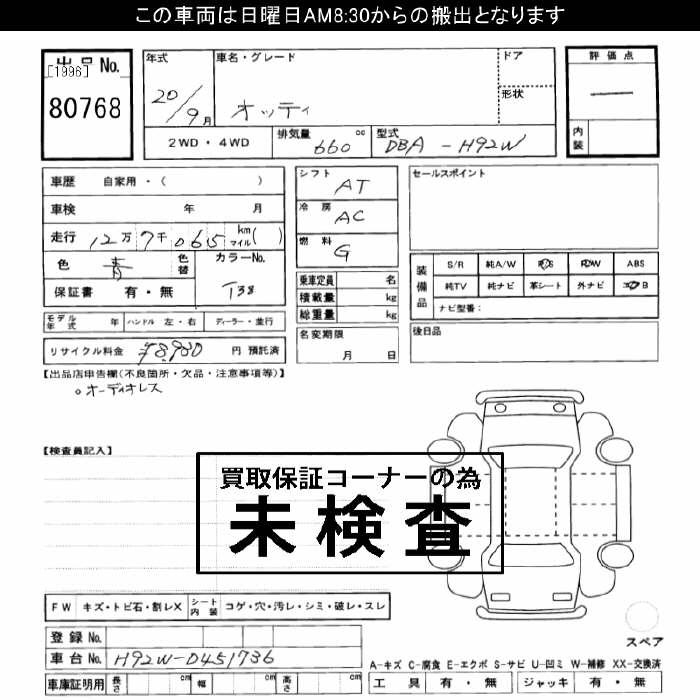 この車両は日曜日AM8:30からの搬出となります
出品No.
[1996]
80768
年式
20/9月
車名・グレード
オッティ
ドア
形状
評価点
―
内装
2WD・4WD
排気量 660 cc
型式 DBA-H92W
車歴 自家用・( )
車検 年 月
走行 12万7千065 km マイル( )
色 青 色替
カラーNo. T38
保証書 有・無
モデル年式 年 ハンドル 左・右 ディーラー・並行
リサイクル料金 ¥8,980 円 預託済
シフト AT
冷房 AC
燃料 G
乗車定員 名
積載量 kg
総重量 kg
名変期限
月 日
セールスポイント
装備品
S/R 純A/W P/S P/W ABS
純TV 純ナビ 革シート 外ナビ エアB
ナビ型番:
後日品
【出品店申告欄(不良箇所・欠品・注意事項等)】
。オーディオレス
【検査員記入】
買取保証コーナーの為
未検査
FW キズ・トビ石・割レX シート内装 コゲ・穴・汚レ・シミ・破レ・スレ
スペア
登録No.
車台No. H92W-D451736
車庫証明用 長さ cm 幅 cm 高さ cm
A-キズ C-腐食 E-エクボ S-サビ U-凹ミ W-補修 XX-交換済
工具 有・無 ジャッキ 有・無